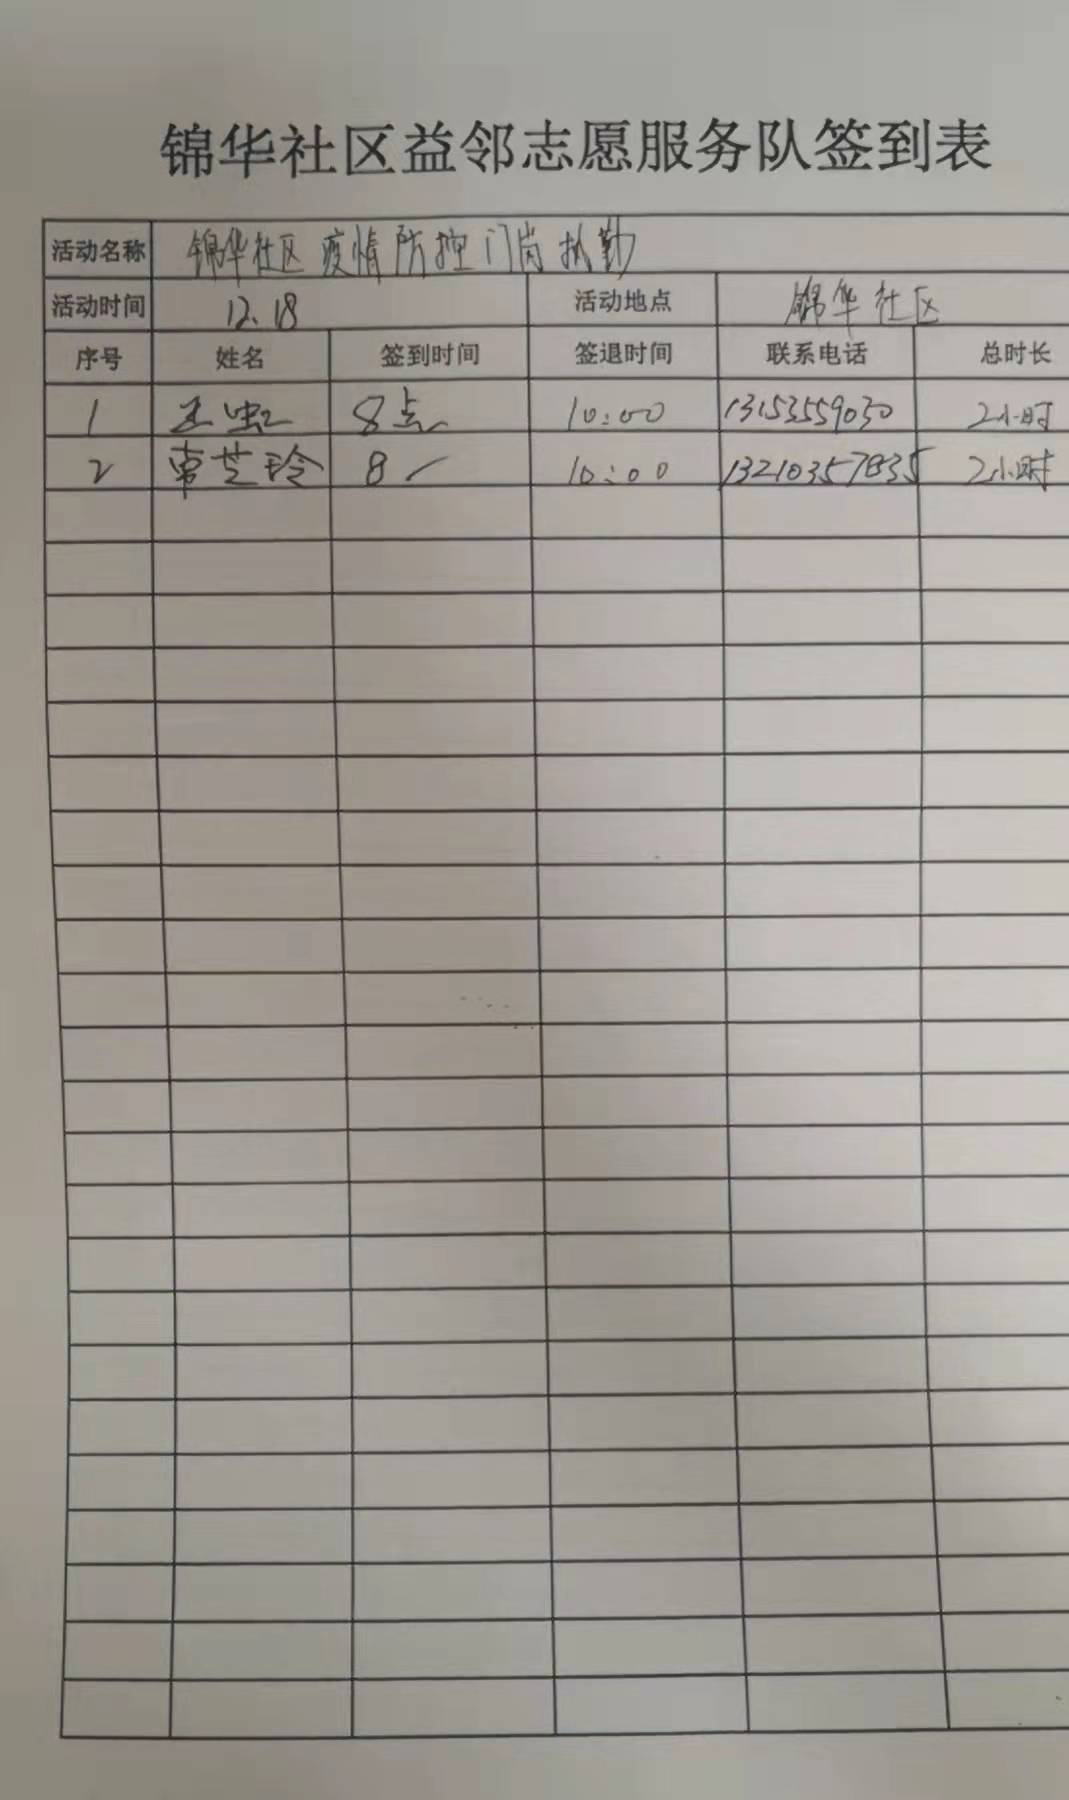 锦华社区益邻志愿服务队签到表
活动名称 锦华社区疫情防控门岗执勤
活动时间 12.18 活动地点 锦华社区
序号 姓名 签到时间 签退时间 联系电话 总时长
1 王虹 8点 10:00 13153559030 2小时
2 常芝玲 8 10:00 13210357835 2小时